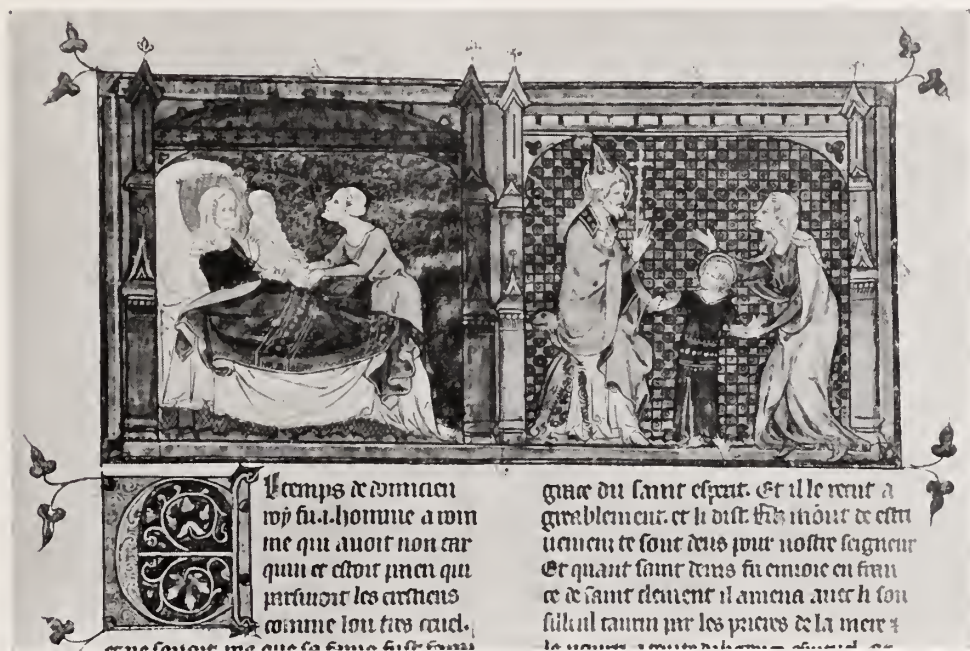 El temps de domicien
roy fu .i. homme a rom
me qui auoit non tar
quin et estoit paien qui
persiuoit les crestiens
comme lou tres cruel.
grace du saint esperit. Et il le recut a
greablement. et li dist. Filz mout de estri
uement te sont deus pour nostre seigneur
Et quant saint denis fu enuoie en fran
ce de saint clement il amena auec li son
fillieul taurin par les prieres de la mere